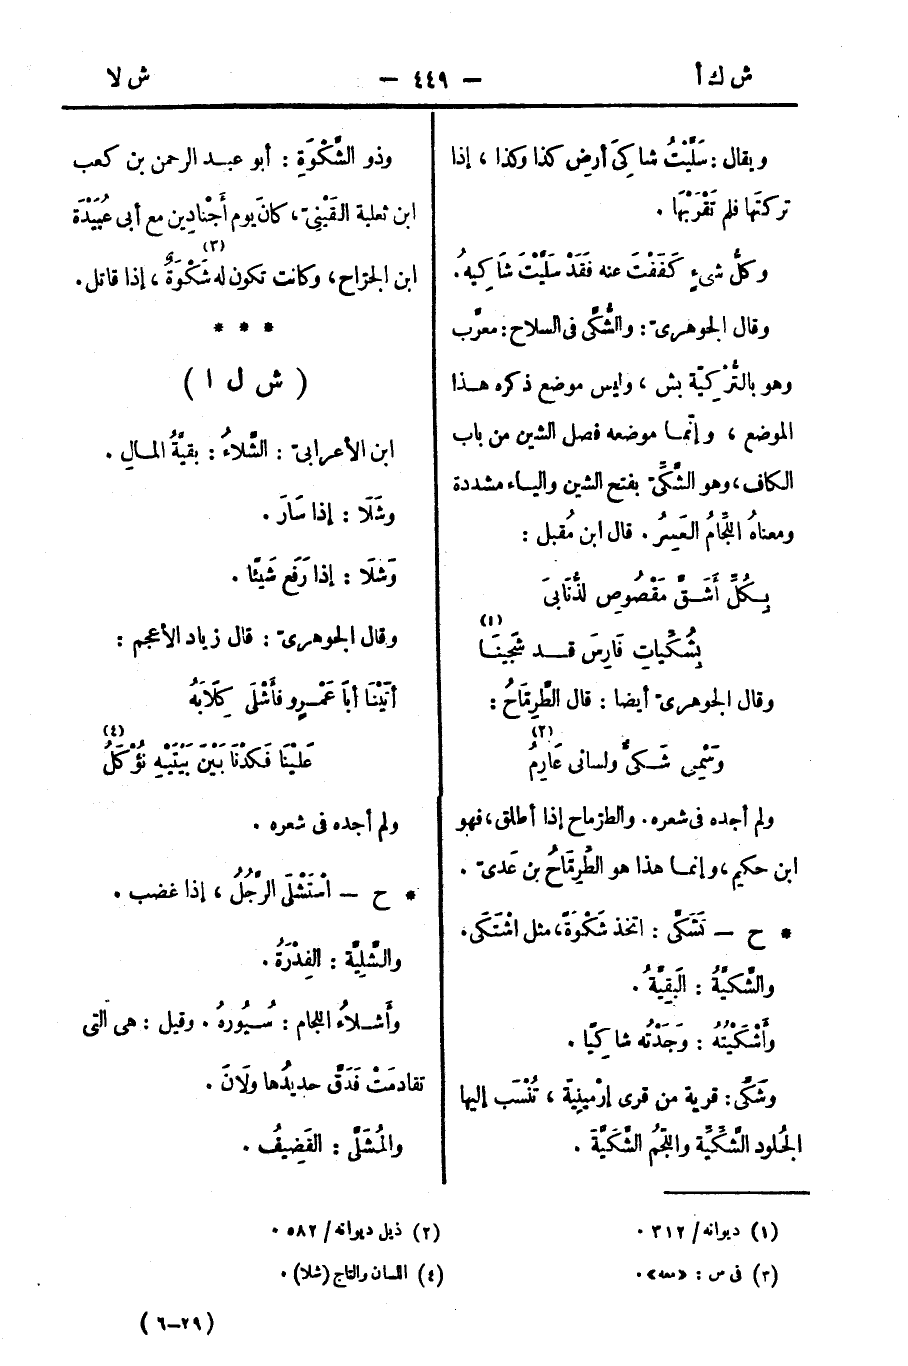 ش ك أ
— ٤٤٩ —
ش لا
ويقال : سَلَّيْتُ شاكِىَ أرضِ كذا وكذا ، إذا
تركتَها فلم تَقْرَبْها .
وكلُّ شىءٍ كَفَفْتَ عنه فَقَدْ سَلَّيْتَ شاكِيهُ.
وقال الجوهرىّ : والشُّكِّى فى السلاح : معرَّب
وهو بالتُّرْكِيّة بش ، وليس موضع ذكره هذا
الموضع ، وإنّما موضعه فصل الشين من باب
الكاف ، وهو الشَّكِّىّ بفتح الشين والياء مشددة
ومعناهُ اللِّجامُ العَسِرُ . قال ابن مُقبل :
بِكُلِّ أَشَقَّ مَقْصُوصِ لذُّنَابىَ
بِشُكِّياتِ فَارِسَ قد شُجِينَا (١)
وقال الجوهرىّ أيضا : قال الطِّرِمَّاحُ :
وَسَْمِى شَكىٌّ ولسانى عَارِمُ (٢)
ولم أجده فى شعره . والطرماح إذا أطلق ، فهو
ابن حكيم ، وإنما هذا هو الطِّرِمَّاحُ بن عَدىّ .
* ح — تَشَكَّى : اتخذ شَكْوَةً ، مثل اشْتَكَى ،
والشَّكِيَّةُ : البَقِيَّةُ .
وأَشْكَيْتُهُ : وَجَدْتُه شاكِيًا .
وشَكَّى : قرية من قرى إرْمِينِيَة ، تُنْسَب إليها
الجُلود الشَّكِّيَة واللُّجُمُ الشَّكِّيَّةَ .
وذو الشَّكْوَةِ : أبو عبد الرحمن بن كعب
ابن ثعلبة القَيْنِىّ ، كانَ يوم أَجْنادِين مع أبى عُبَيْدَة
ابن الجراح ، وكانت تكون له شَكْوَةٌ (٣) ، إذا قاتل .
* * *
( ش ل ا )
ابن الأعرابىّ : الشَّلاءُ : بقيَّةُ المالِ .
وشَلَا : إذا سَارَ .
وَشلَا : إذا رَفَع شَيئًا .
وقال الجوهرىّ : قال زياد الأعجم :
أتَيْنَا أبَا عَمْرٍو فأَشْلَى كِلَابَهُ
عَلينَا فَكِدْنَا بَيْنَ بَيْتَيْهِ نُؤْكَلُ (٤)
ولم أجده فى شعره .
* ح — اسْتَشْلَى الرَّجُلُ ، إذا غضب .
والشَّلِيَّة : الفِدْرَةُ .
وأَشلاءُ اللجام : سُيُورهُ . وقيل : هى التى
تقادمَتْ فَدَقَّ حديدُها ولَانَ .
والمُشَلَّى : القَضِيفُ .
(١) ديوانه / ٣١٢ .
(٢) ذيل ديوانه / ٥٨٢ .
(٣) فى س : «معه» .
(٤) اللسان والتاج (شلا) .
(٦—٢٩)